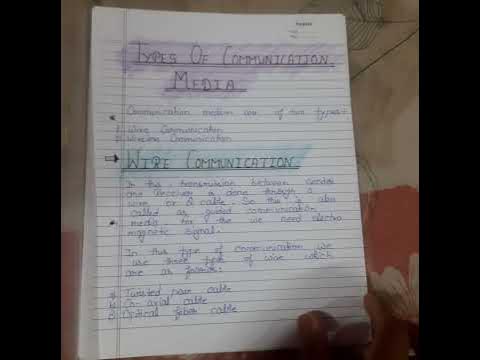 TYPES OF COMMUNICATION
MEDIA
Communication medium are of two types:-
1. Wire Communication
2. Wireless Communication
WIRE COMMUNICATION
In this transmission between sender
and receiver is done through a
wire or a cable. So this is also
called as guided communication
media for the we need electro
magnetic signal.
In this type of communication we
use three type of wire which
are as follows:
Twisted pair cable
Co-axial cable
Optical fiber cable